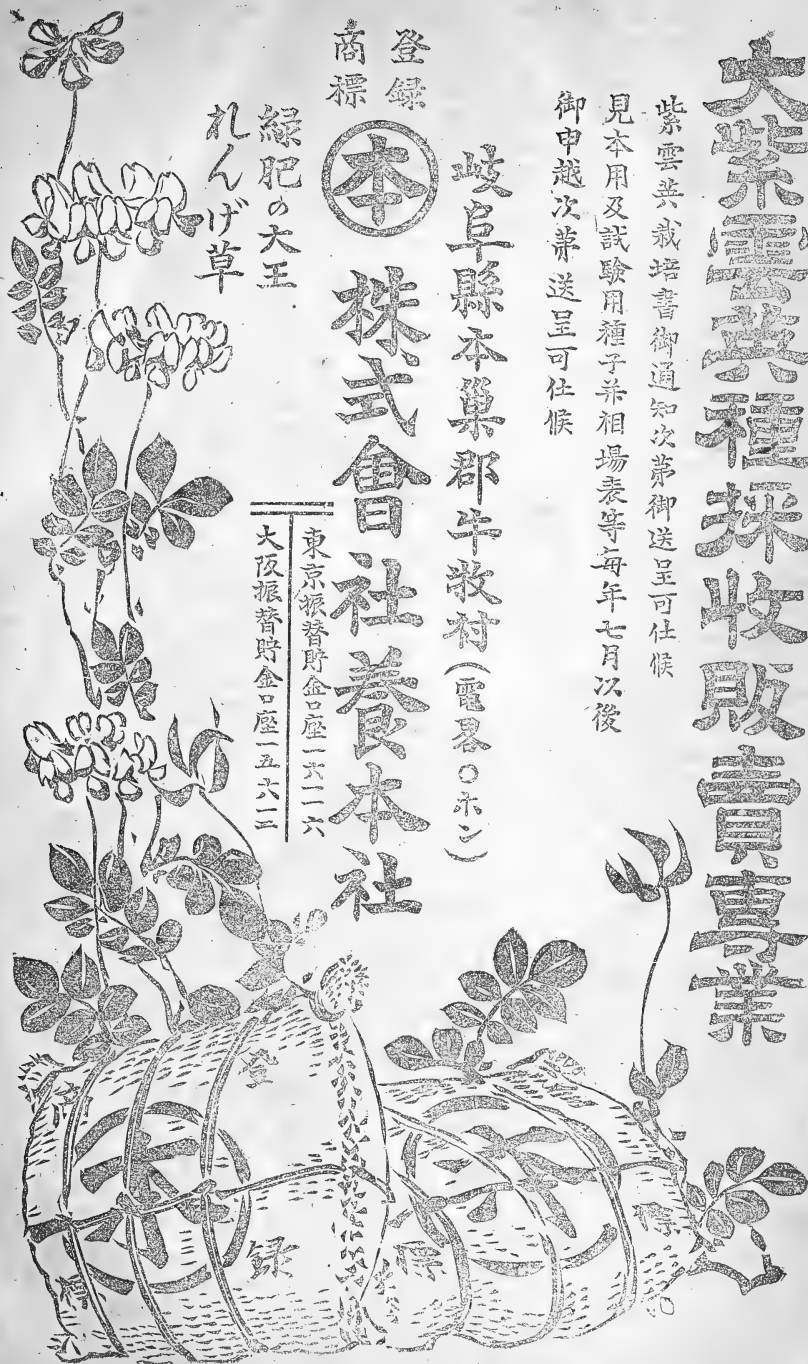 大紫雲英種採收販賣専業
紫雲英栽培書御通知次第御送呈可仕候
見本用及試験用種子并相場表等毎年七月以後
御申越次第送呈可仕候
岐阜縣本巣郡牛牧村(電畧〇ホン)
登録
商標
本
株式會社養本社
東京振替貯金口座一六一一六
大阪振替貯金口座一五六一二
緑肥の大王
れんげ草
登
録
商
標
本
本
標